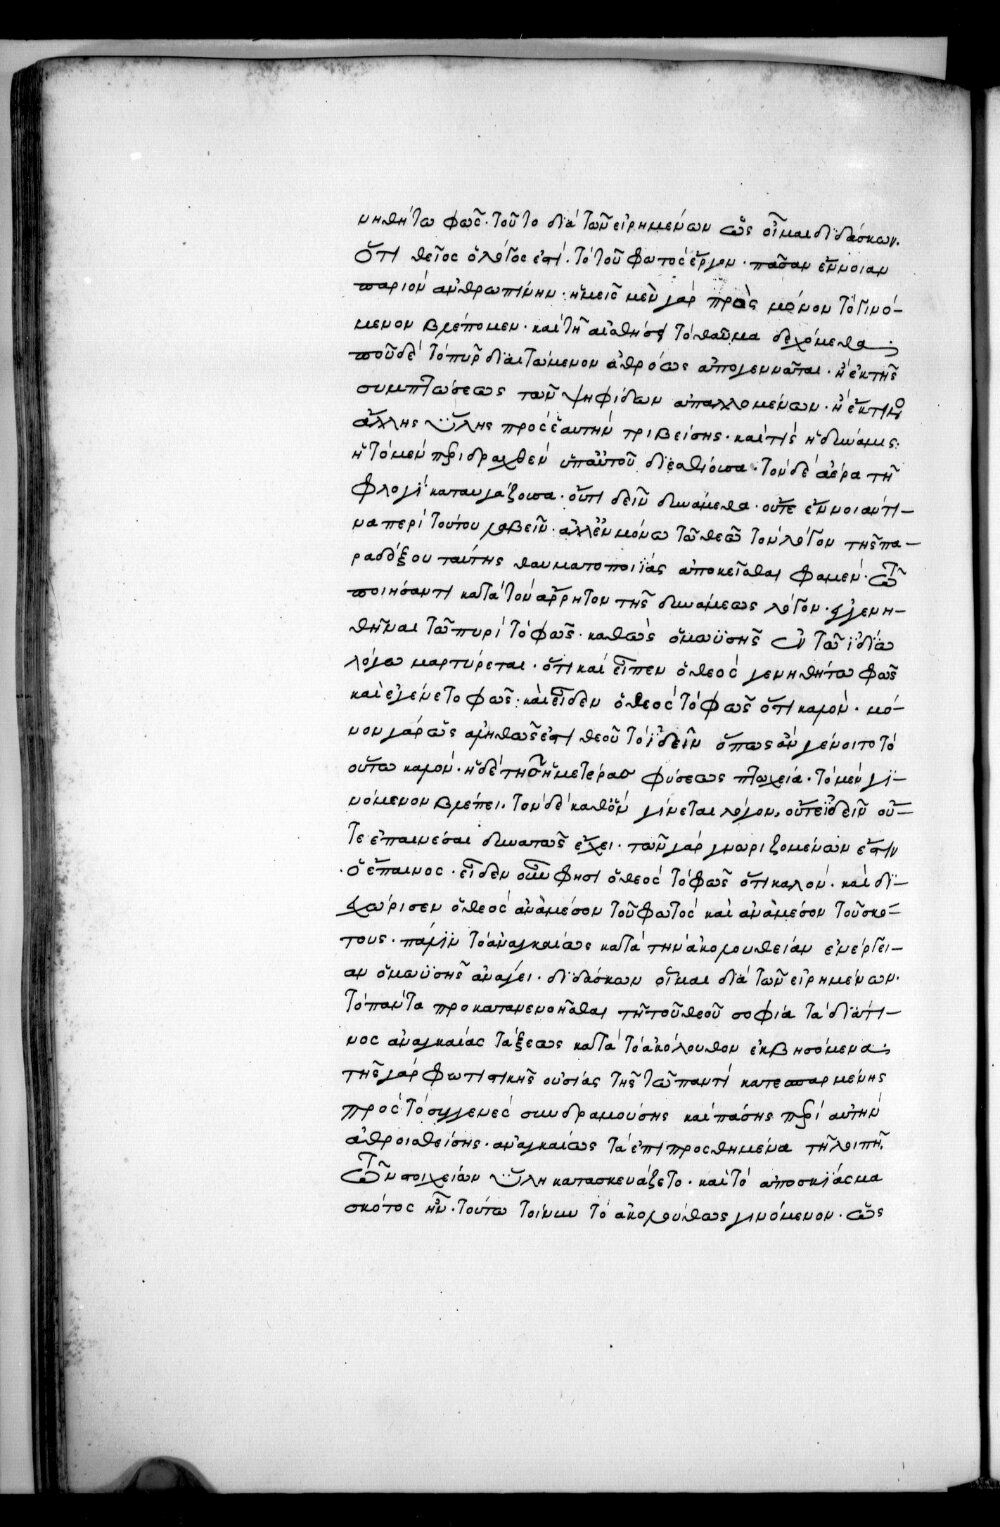 νηθήτω φῶς· τοῦτο διὰ τῶν εἰρημένων ὡς οἶμαι διδάσκων.
ὅτι θεῖος ὁ λόγος ἐστί· τὸ τοῦ φωτὸς ἔργον· πᾶσαν ἔννοιαν
παριὸν ἀνθρωπίνην· ἡμεῖς μὲν γὰρ πρὸς μόνον τὸ γινό-
μενον βλέπομεν· καὶ τῇ αἰσθήσει τὸ θαῦμα δεχόμεθα·
ποῦ δὲ τὸ πῦρ διαιτώμενον ἀθρόως ἀπογεννᾶται· ἢ ἐκ τῆς
συμπτώσεως τῶν ψηφίδων ἀπαλλομένων· ἢ ἔκ τινος
ἄλλης ὕλης πρὸς ἑαυτὴν τριβείσης· καὶ τίς ἡ δύναμις·
ἡ τὸ μὲν περιδραχθὲν ὑπ αὐτοῦ διεσθίουσα· τὸν δὲ ἀέρα τῇ
φλογὶ καταυγάζουσα· οὔτι δεῖν δυνάμεθα· οὔτε ἔννοιαν τί-
να περὶ τούτου λαβεῖν· ἀλλ ἐν μόνω τῶ θεῶ τὸν λόγον τῆς πα-
ραδόξου ταύτης θαυματοποιΐας ἀποκεῖσθαι φαμέν· τῶ
ποιήσαντι κατὰ τὸν ἄρρητον τῆς δυνάμεως λόγον· ἐγγενη-
θῆναι τῶ πυρὶ τὸ φῶς· καθὼς ὁ μωϋσῆς ἐν τῶ ἰδίω
λόγω μαρτύρεται· ὅτι καὶ εἶπεν ὁ θεός γενηθήτω φῶς
καὶ ἐγένετο φῶς· καὶ εἶδεν ὁ θεὸς τὸ φῶς ὅτι καλόν· μό-
νον γὰρ ὡς ἀληθῶς ἐστι θεοῦ τὸ ἰδεῖν ὅπως ἂν γένοιτο τὸ
οὕτω καλόν· ἡ δὲ τῆς ἡμετέρας φύσεως πτωχεία· τὸ μὲν γι-
νόμενον βλέπει, τὸν δὲ καθ ὃν γίνεται λόγον, οὔτε ἰδεῖν οὔ-
τε ἐπαινέσαι δυνατῶς ἔχει· τῶν γὰρ γνωριζομένων ἐστὶν
ὁ ἔπαινος· εἶδεν οὖν φησι ὁ θεὸς τὸ φῶς ὅτι καλόν· καὶ δι-
εχώρισεν ὁ θεὸς ἀνάμεσον τοῦ φωτός καὶ ἀνάμεσον τοῦ σκό-
τους· πάλιν τὸ ἀναγκαίως κατὰ τὴν ἀκολουθείαν ἐνέργει-
αν ὁ μωϋσῆς ἀνάγει· διδάσκων οἶμαι διὰ τῶν εἰρημένων·
τὸ πάντα προκατανενοῆσθαι τῇ τοῦ θεοῦ σοφία τὰ διά τι-
νος ἀναγκαίας τάξεως κατὰ τὸ ἀκόλουθον ἐκβησόμενα·
τῆς γὰρ φωτιστικῆς οὐσίας τῆς τῶ παντὶ κατεσπαρμένης
πρὸς τὸ συγγενὲς συνδραμούσης καὶ πάσης περὶ αὐτὴν
ἀθροισθείσης· ἀναγκαίως τὰ ἐπιπροσθημένα τῇ λοιπῇ
τῶν στοιχείων ὕλη κατασκευάζετο· καὶ τὸ ἀποσκίασμα
σκότος ἦν· τούτω τοίνυν τὸ ἀκολούθως γινόμενον· ὡς